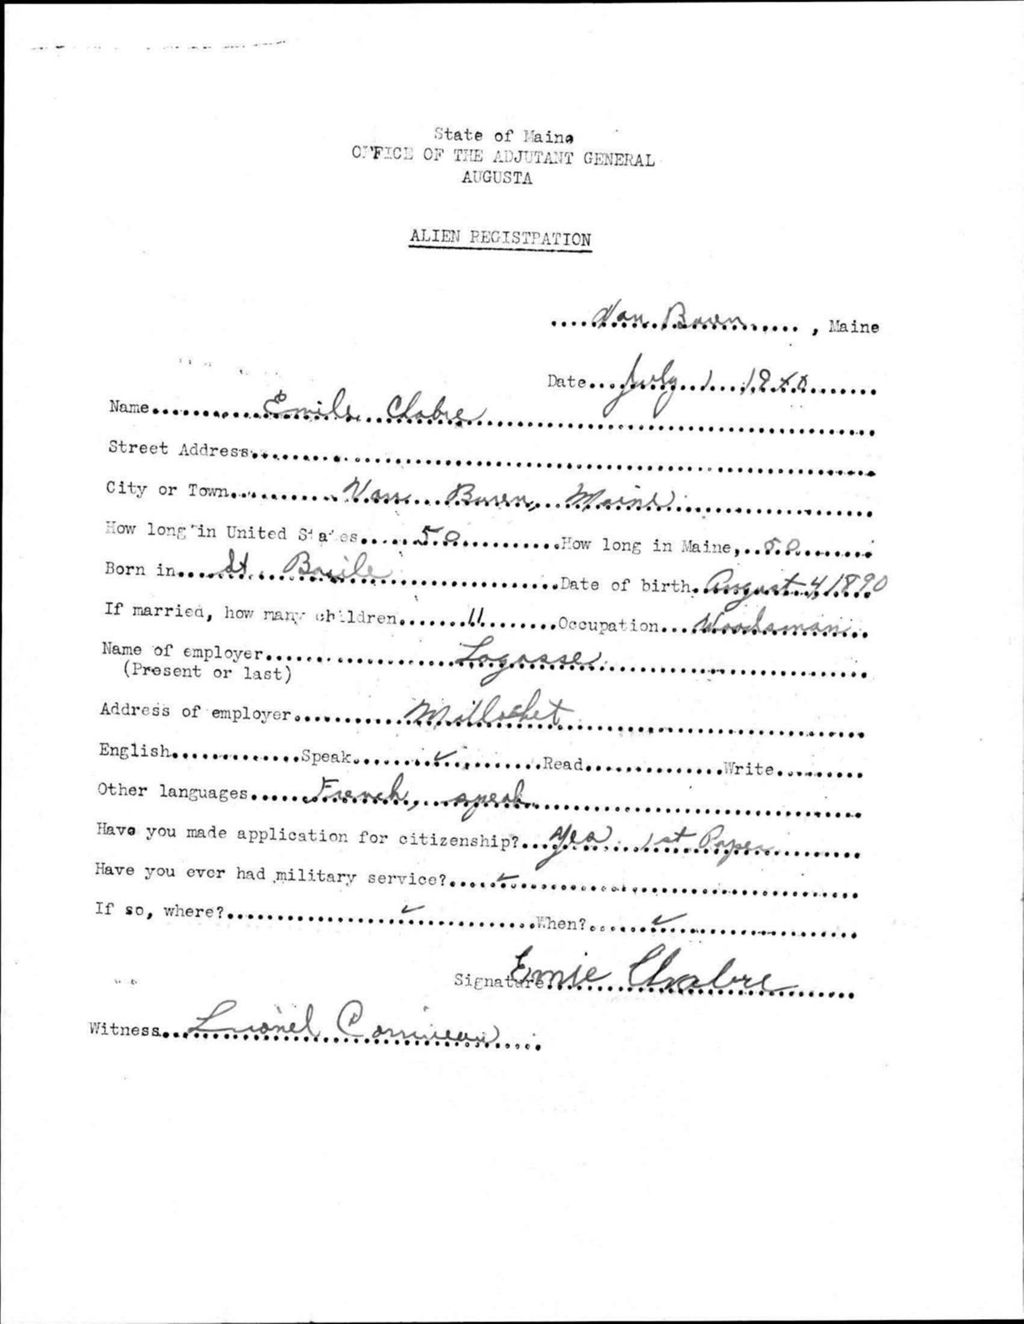 State of Maine
OFFICE OF THE ADJUTANT GENERAL
AUGUSTA
ALIEN REGISTRATION
Van Buren, Maine
Date July 1 1940
Name Emile Clabre
Street Address
City or Town Van Buren, Maine
How long in United States 50 How long in Maine, 50
Born in St. Basile Date of birth August 4 1890
If married, how many children 11 Occupation Woodsman
Name of employer Lagasse
(Present or last)
Address of employer
English Speak ✓ Read Write
Other languages French, speak
Have you made application for citizenship? Yes 1st Paper
Have you ever had military service? ✓
If so, where? ✓ When? ✓
Signature Emie Chabre
Witness Lionel